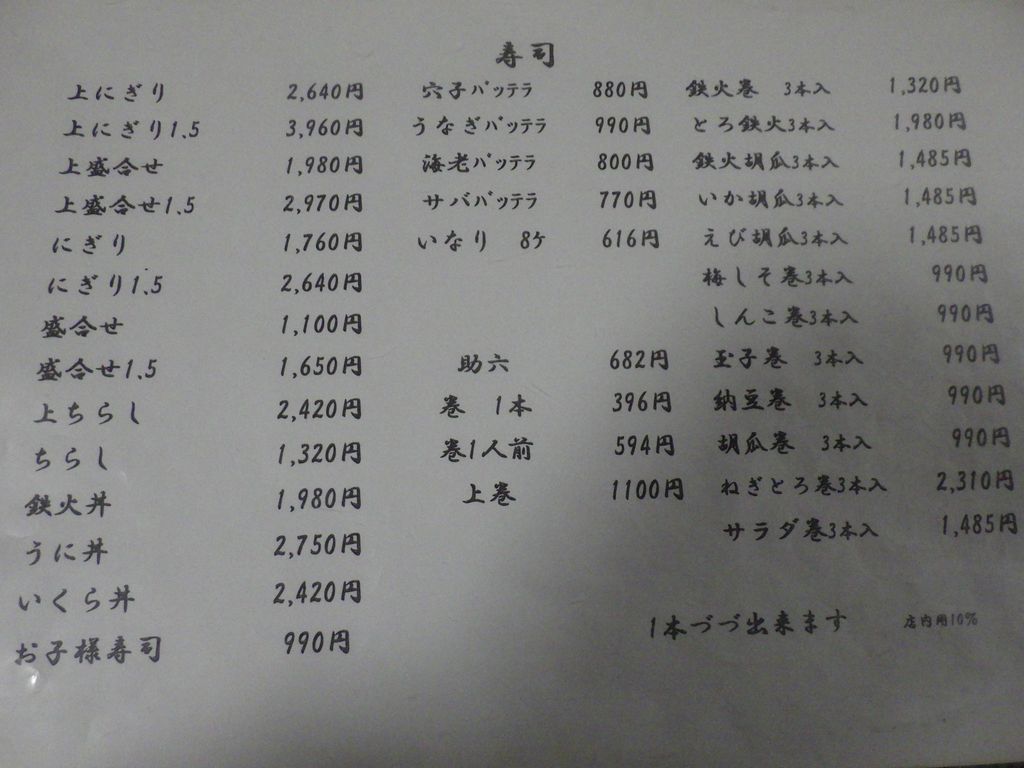 寿司
上にぎり 2,640円
上にぎり1.5 3,960円
上盛合せ 1,980円
上盛合せ1.5 2,970円
にぎり 1,760円
にぎり1.5 2,640円
盛合せ 1,100円
盛合せ1.5 1,650円
上ちらし 2,420円
ちらし 1,320円
鉄火丼 1,980円
うに丼 2,750円
いくら丼 2,420円
お子様寿司 990円
穴子バッテラ 880円
うなぎバッテラ 990円
海老バッテラ 800円
サババッテラ 770円
いなり 8ケ 616円
助六 682円
巻 1本 396円
巻1人前 594円
上巻 1100円
鉄火巻 3本入 1,320円
とろ鉄火3本入 1,980円
鉄火胡瓜3本入 1,485円
いか胡瓜3本入 1,485円
えび胡瓜3本入 1,485円
梅しそ巻3本入 990円
しんこ巻3本入 990円
玉子巻 3本入 990円
納豆巻 3本入 990円
胡瓜巻 3本入 990円
ねぎとろ巻3本入 2,310円
サラダ巻3本入 1,485円
1本づづ出来ます 店内用10%